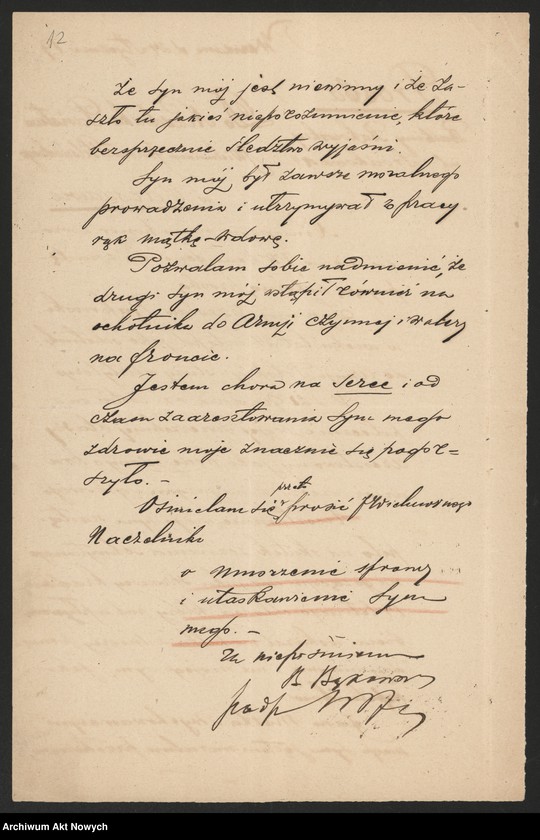 12
że syn mój jest niewinny i że za-
szło tu jakieś nieporozumienie, które
bezsprzecznie śledztwo wyjaśni.
Syn mój był zawsze moralnego
prowadzenia i utrzymywał z pracy
rąk matkę-wdowę.
Pozwalam sobie nadmienić, że
drugi syn mój wstąpił również na
ochotnika do Armji czynnej i walczy
na froncie.
Jestem chora na serce i od
czasu zaaresztowania syna mego
zdrowie moje znacznie się pogor=
szyło. -
Ośmielam się przeto prosić JWielmożnego
Naczelnika
o umorzenie sprawy
i ułaskawienie syna
mego. -
Za niepiśmienną
B Bąkowską
podp
Archiwum Akt Nowych